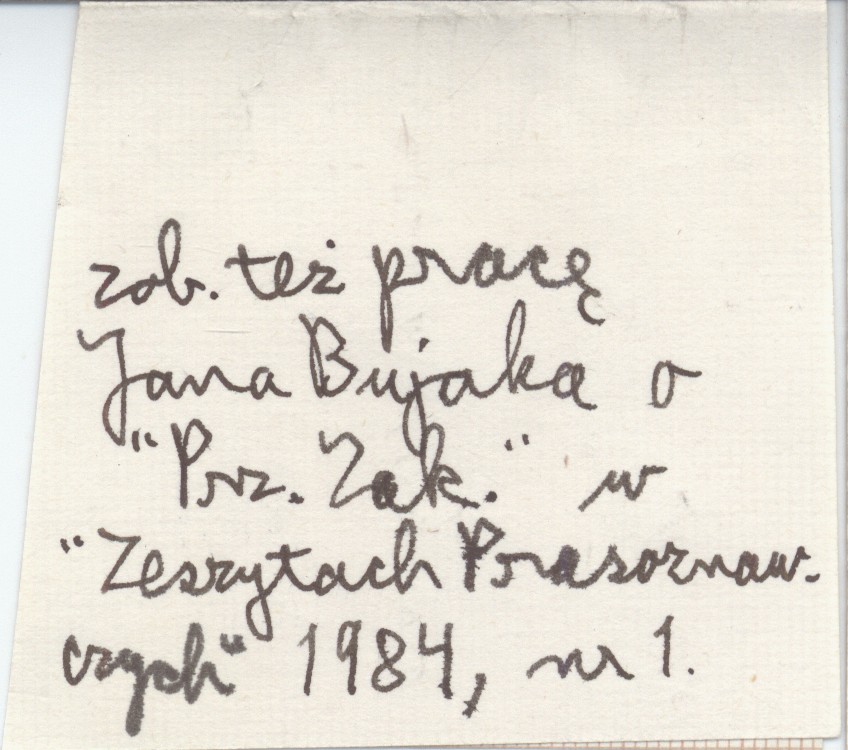 zob. też pracę
Jana Bujaka o
"Prz. Zak." w
"Zeszytach Prasoznaw-
czych" 1984, nr 1.